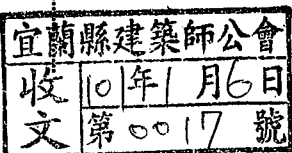 宜蘭縣建築師公會
收文
101年1月6日
第0017號